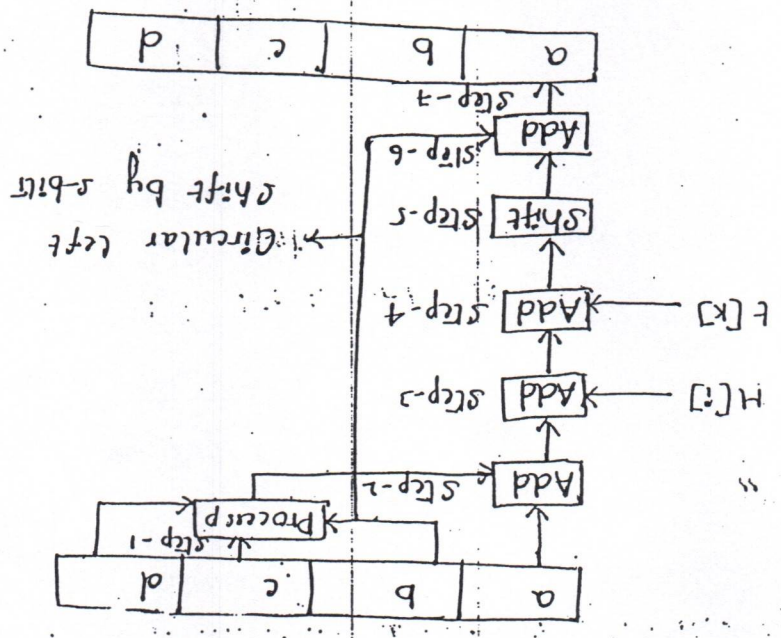 a b c d
Process P Step-1
Add Step-2
M[i] Add Step-3
t[k] Add Step-4
Shift Step-5
Circular left
shift by s-bits
Add Step-6
Step-7
a b c d